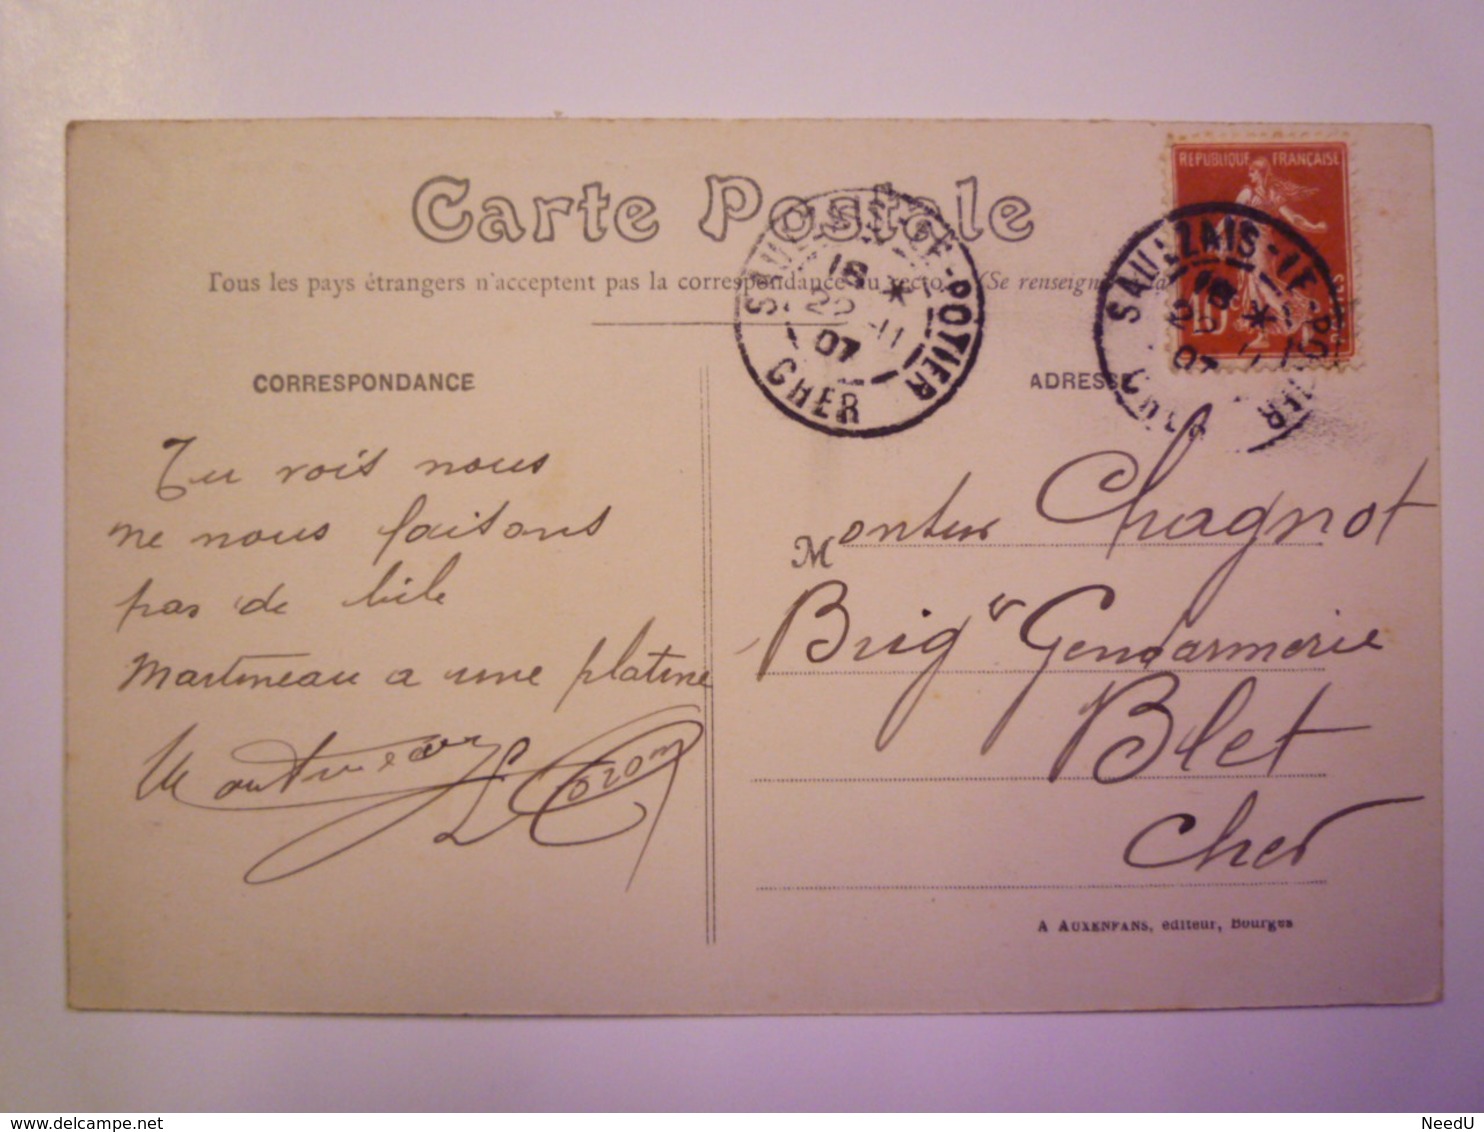 Carte Postale
Tous les pays étrangers n'acceptent pas la correspondance au recto (Se renseigner à la
CORRESPONDANCE
ADRESSE
REPUBLIQUE FRANÇAISE
10c
SAULZAIS-LE-POTIER
18 *
22 -11
07
CHER
SAULZAIS-LE-POTIER
18 *
22 11
07
CHER
Tu vois nous
ne nous faisons
pas de bile
Martineau a une platine
Martineau
Monsieur Chagnot
Brigr Gendarmerie
Blet
Cher
A AUXENFANS, éditeur, Bourges
delcampe.net
NeedU